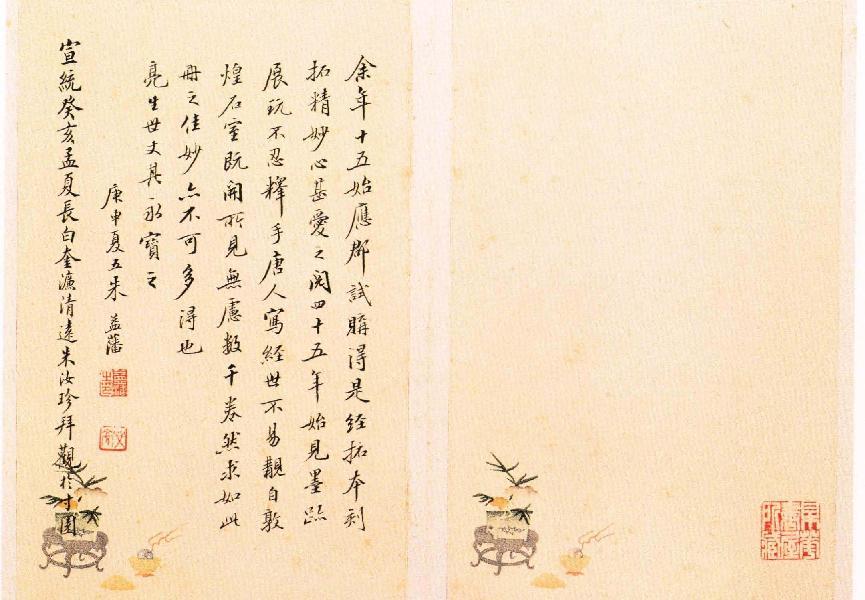 余年十五始應郡試購得是經拓本刻
拓精妙心甚愛之閱四十五年始見墨跡
展玩不忍釋手唐人寫經世不易覯自敦
煌石室既開所見無慮數千卷然求如此
冊之佳妙亦不可多得也
亮生世丈其永寶之
庚申夏五朱益藩
宣統癸亥孟夏長白奎濂清遠朱汝珍拜觀於寸園